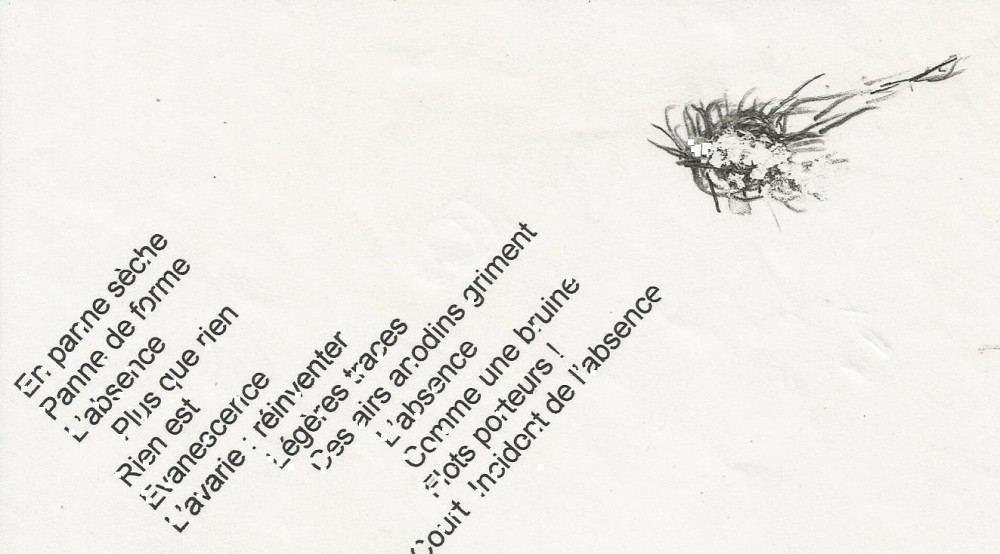 En panne sèche
Panne de forme
L'absence
Plus que rien
Rien est
Evanescence
L'avarie : réinventer
Légères traces
Des airs anodins griment
L'absence
Comme une bruine
Flots porteurs !
Court Incident de l'absence